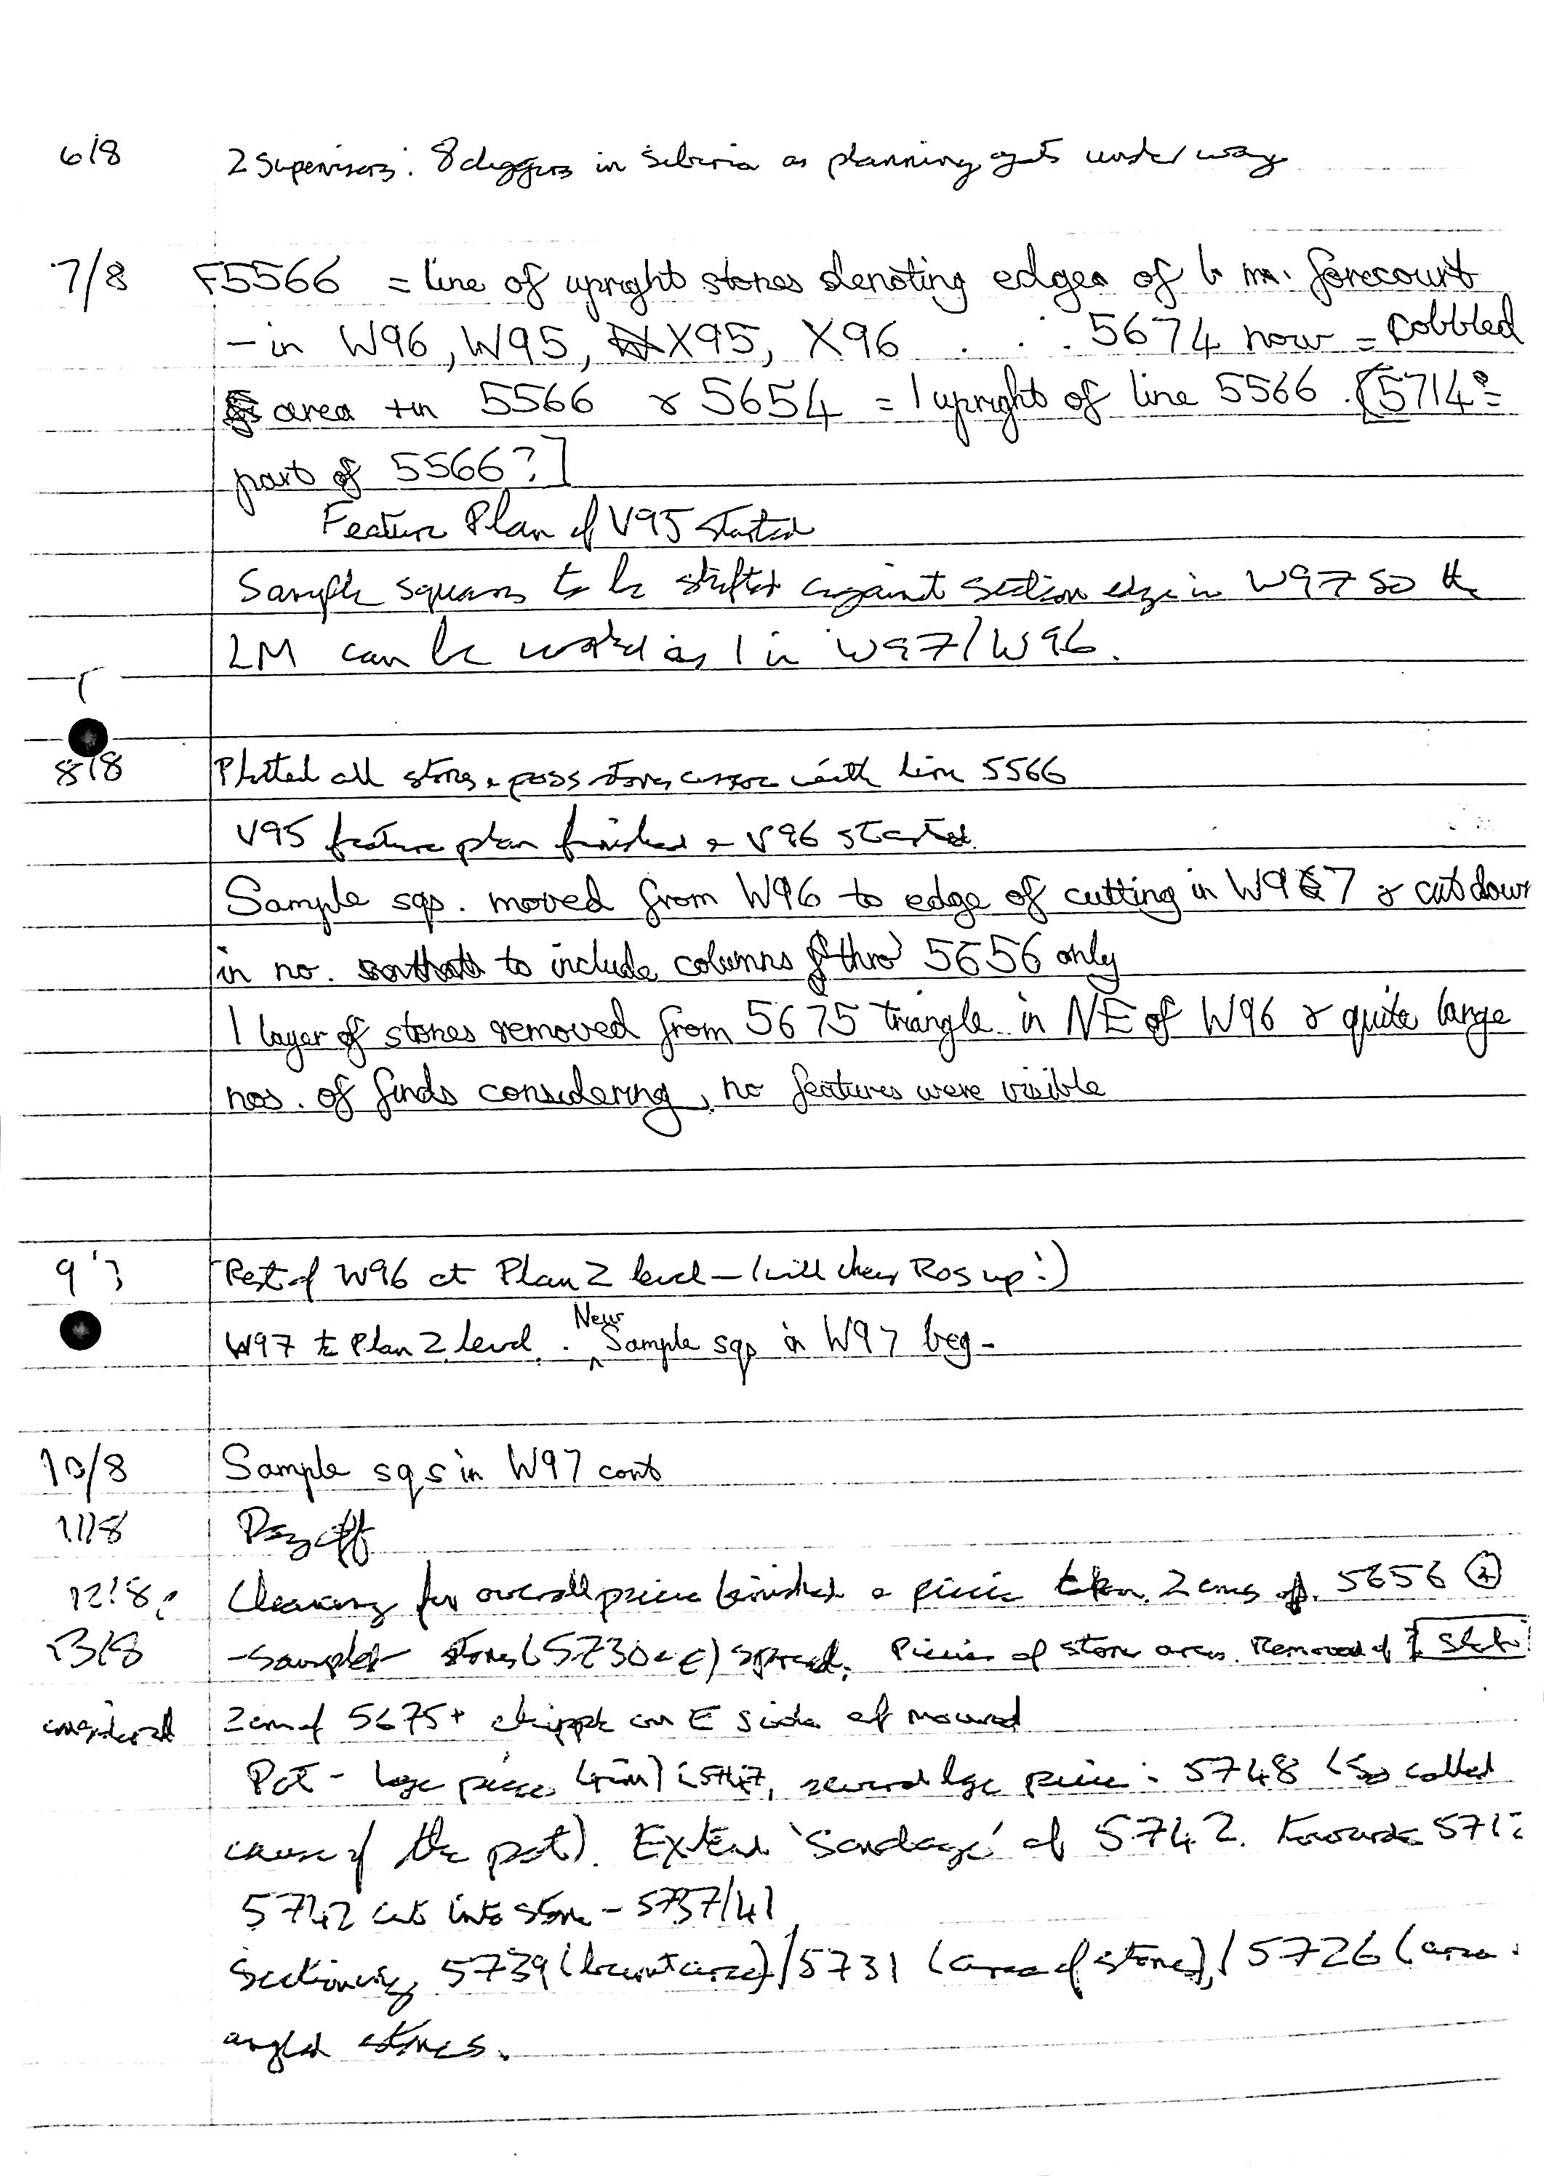 6/8 2 Supervisors: 8 diggers in Siberia as planning gets under way
7/8 F5566 = line of upright stones denoting edges of b ma. forecourt
- in W96, W95, X95, X96 ∴ 5674 now = cobbled
area +in 5566 & 5654 = 1 upright of line 5566. [5714 =
part of 5566?]
Feature Plan of V95 started
Sample squares to be shifted against section edge in W97 so the
LM can be worked as 1 in W97/W96.
8/8 Plotted all stones & poss stones assoc with line 5566
V95 feature plan finished & V96 started.
Sample sqs. moved from W96 to edge of cutting in W97 & cut down
in no. to include columns thro' 5656 only
1 layer of stones removed from 5675 triangle in NE of W96 & quite large
nos. of finds considering, no features were visible
9 Rest of W96 at Plan 2 level - (will cheer Ros up!)
W97 to Plan 2 level. New Sample sqs in W97 beg -
10/8 Sample sqs in W97 cont
11/8 Day off
12/8 Cleaning for overall finished & taken. 2 cms of 5656
13/8 - sampled - stones (5730 spread. of stone areas. Removed
considerall 2 cm of 5675 + on E side of mound
Pot - lge piece (rim) 5747, several lge 5748 (so called
cause of the pot). Extend 'Sondage' of 5742. towards 571
5742 cuts into stone - 5737/41
Sectioning 5739 (burnt area) / 5731 (area of stone) / 5726 (area
angled stones.